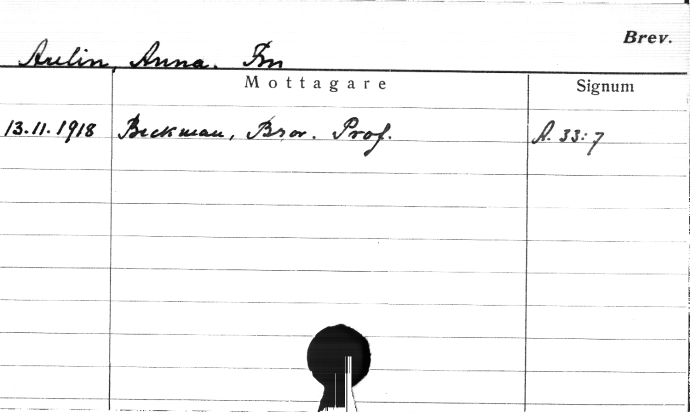 Brev.
Aulin, Anna. Fru
Mottagare Signum
13.11.1918 Beckman, Bror. Prof. A. 33:7